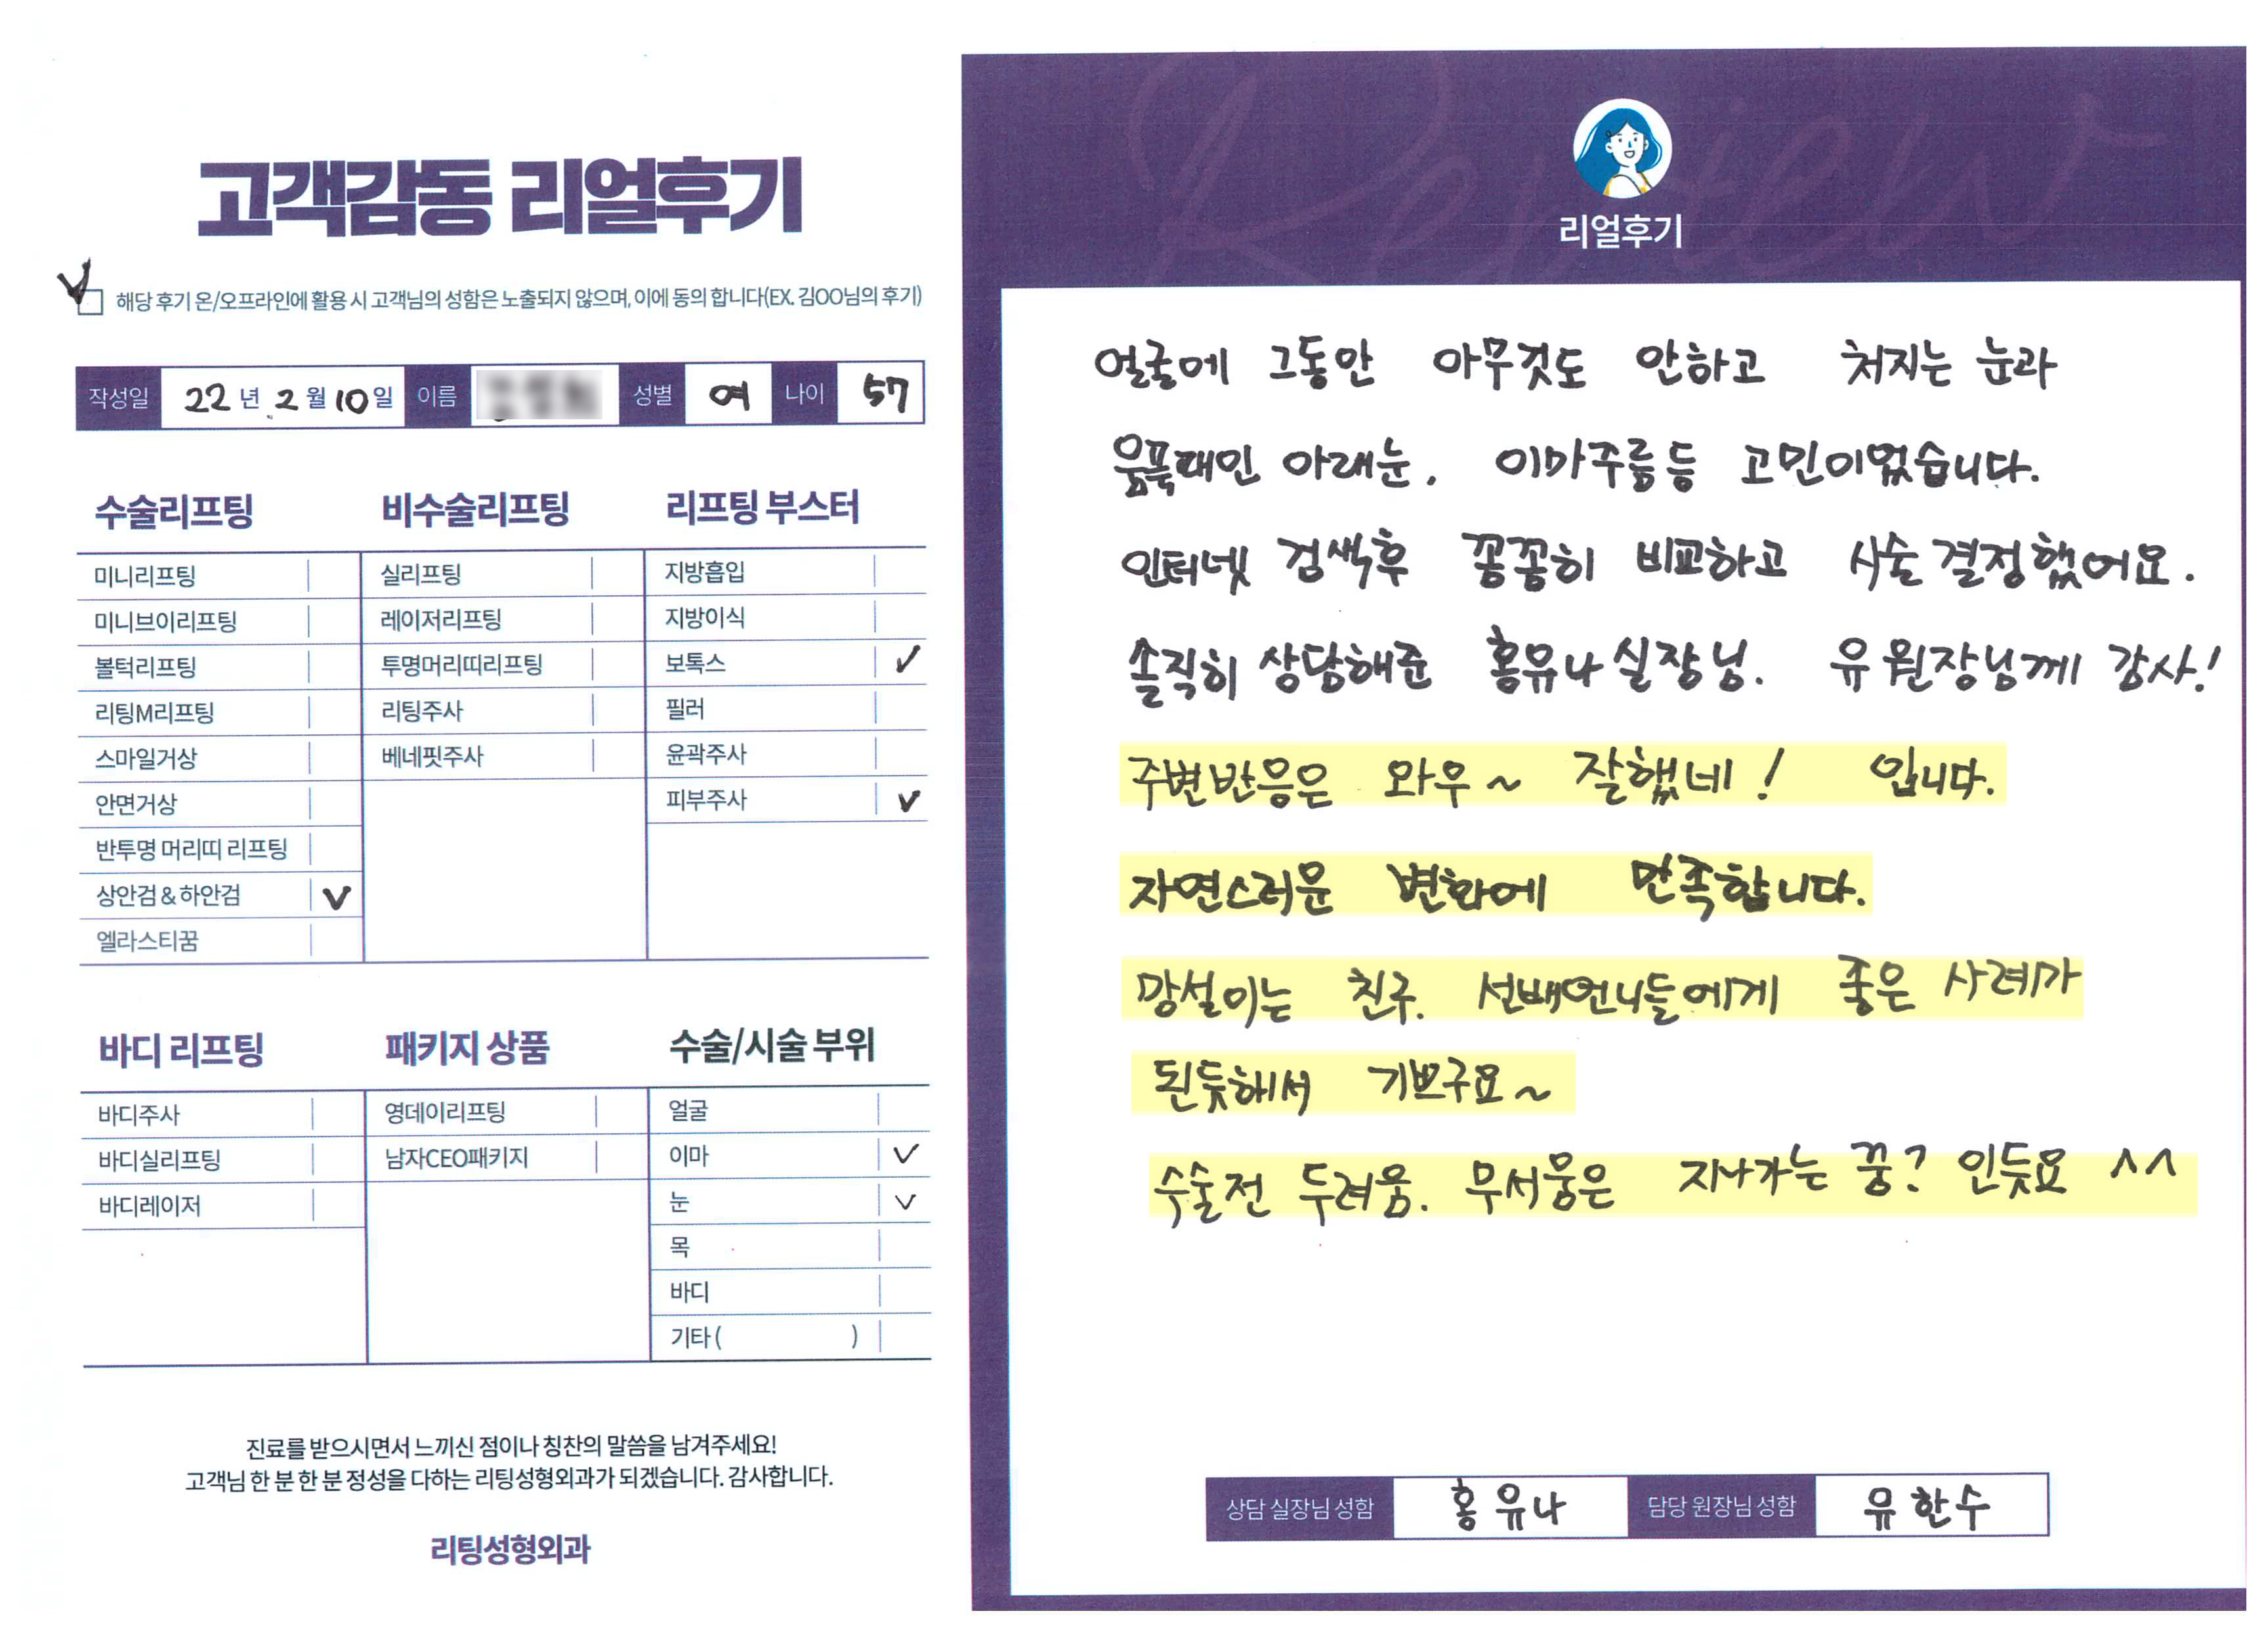 고객감동 리얼후기
해당 후기 온/오프라인에 활용 시 고객님의 성함은 노출되지 않으며, 이에 동의 합니다(EX. 김OO님의 후기)
작성일 22년 2월 10일 이름 성별 여 나이 57
수술리프팅
미니리프팅
미니브이리프팅
볼턱리프팅
리팅M리프팅
스마일거상
안면거상
반투명 머리띠 리프팅
상안검 & 하안검 V
엘라스티꿈
비수술리프팅
실리프팅
레이저리프팅
투명머리띠리프팅
리팅주사
베네핏주사
리프팅 부스터
지방흡입
지방이식
보톡스 ✓
필러
윤곽주사
피부주사 ✓
바디 리프팅
바디주사
바디실리프팅
바디레이저
패키지 상품
영데이리프팅
남자CEO패키지
수술/시술 부위
얼굴
이마 ✓
눈 ✓
목
바디
기타 ( )
진료를 받으시면서 느끼신 점이나 칭찬의 말씀을 남겨주세요!
고객님 한 분 한 분 정성을 다하는 리팅성형외과가 되겠습니다. 감사합니다.
리팅성형외과
Review
리얼후기
얼굴에 그동안 아무것도 안하고 처지는 눈과
움푹패인 아래눈. 이마주름등 고민이었습니다.
인터넷 검색후 꽁꽁히 비교하고 시술 결정했어요.
솔직히 상담해준 홍유나실장님. 유원장님께 감사!
주변반응은 와우~ 잘했네! 입니다.
자연스러운 변화에 만족합니다.
망설이는 친구. 선배언니들에게 좋은 사례가
된듯해서 기쁘구요~
수술전 두려움. 무서움은 지나가는 꿈? 인듯요 ^^
상담 실장님 성함 홍유나 담당 원장님 성함 유한수